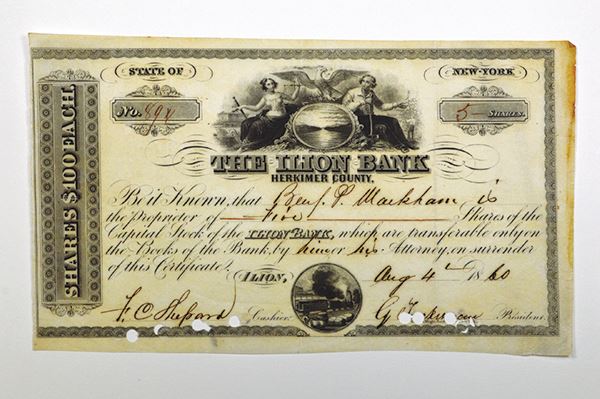 STATE OF NEW-YORK
No. 892 5 SHARES.
SHARES $100 EACH.
THE ILION BANK
HERKIMER COUNTY,
Be it Known, that Benj. P. Markham is
the proprietor of Five Shares of the
Capital Stock of the ILION BANK, which are transferable only on
the Books of the Bank, by him or his Attorney, on surrender
of this Certificate.
ILION, Aug 4th 1860
F. C. Shepard Cashier. President.